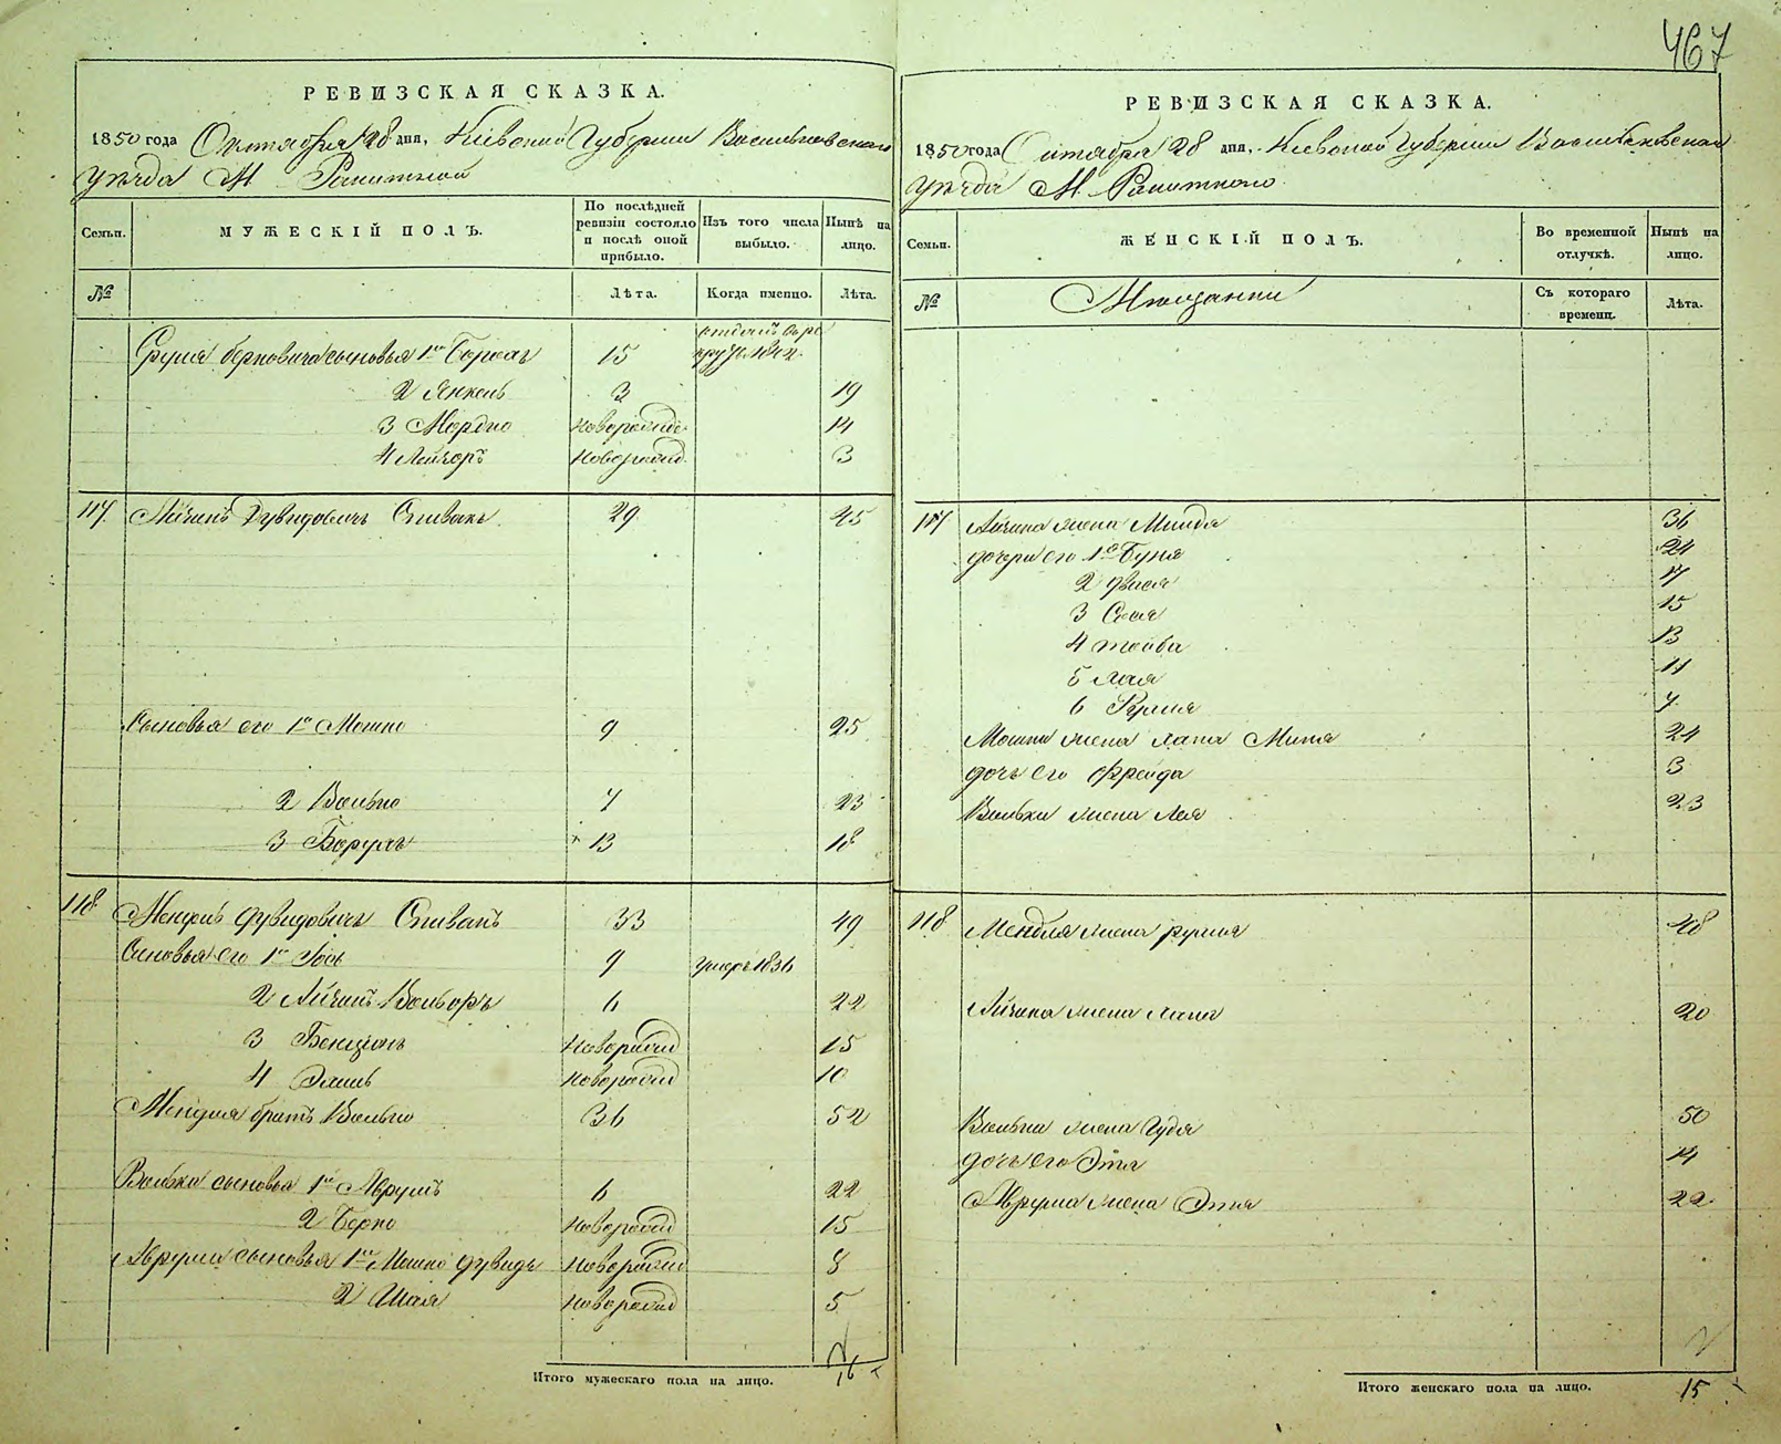 467
РЕВИЗСКАЯ СКАЗКА.
1850 года Октября 28 дня, Кіевской Губерніи Васильковскаго
уѣзда М. Ракитной
Семьи.
МУЖЕСКІЙ ПОЛЪ.
По послѣдней ревизіи состояло и послѣ оной прибыло.
Изъ того числа выбыло.
Нынѣ на лицо.
№
Лѣта.
Когда именно.
Лѣта.
Сруля Берковича сыновья 1й 15 1842
2 Янкель 3 19
3 Мордко новорожд 14
4 Лейзоръ новорожд 3
117 Айзикъ Дувидовичъ Спивакъ 29 45
Сыновья его 1й Мошко 9 25
2 Волько 7 23
3 Борухъ 13 18
118 Мендель Дувидовичъ Спивакъ 33 49
Сыновья его 1й Іось 9 умеръ 1836
2 Айзикъ 6 22
3 Бенціонъ новорожд 15
4 новорожд 10
Менделя братъ Волько 36 52
Волька сыновья 1й Аврумъ 6 22
2 Берко новорожд 15
Аврума сыновья 1й Мошко Дувидъ новорожд 8
2 Шая новорожд 5
Итого мужескаго пола на лицо. 16
РЕВИЗСКАЯ СКАЗКА.
1850 года Октября 28 дня, Кіевской Губерніи Васильковскаго
уѣзда М. Ракитного
Семьи.
ЖЕНСКІЙ ПОЛЪ.
Во временной отлучкѣ.
Нынѣ на лицо.
№
Мѣщанки
Съ котораго времени.
Лѣта.
117 Айзика жена Минда 36
дочери его 1я Буня 24
2 Двося 17
3 Сося 15
4 Тойба 13
5 Лая 11
6 7
Мошки жена Хана 24
дочь его Фрейда 3
Волька жена Лея 23
118 Менделя жена Рухля 48
Айзика жена Хана 20
Волька жена Гудя 50
дочь его Этя 14
Аврума жена Этя 22
Итого женскаго пола на лицо. 15